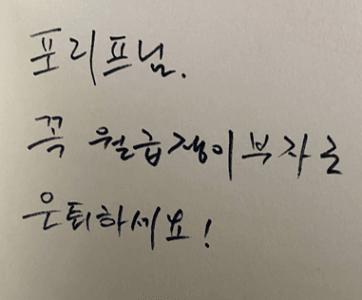 포리프님.
꼭 월급쟁이부자로
은퇴하세요!